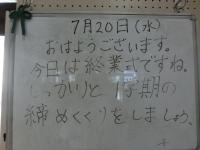 7月20日(水)
おはようございます。
今日は終業式ですね。
しっかりと1学期の
締めくくりをしましょう。